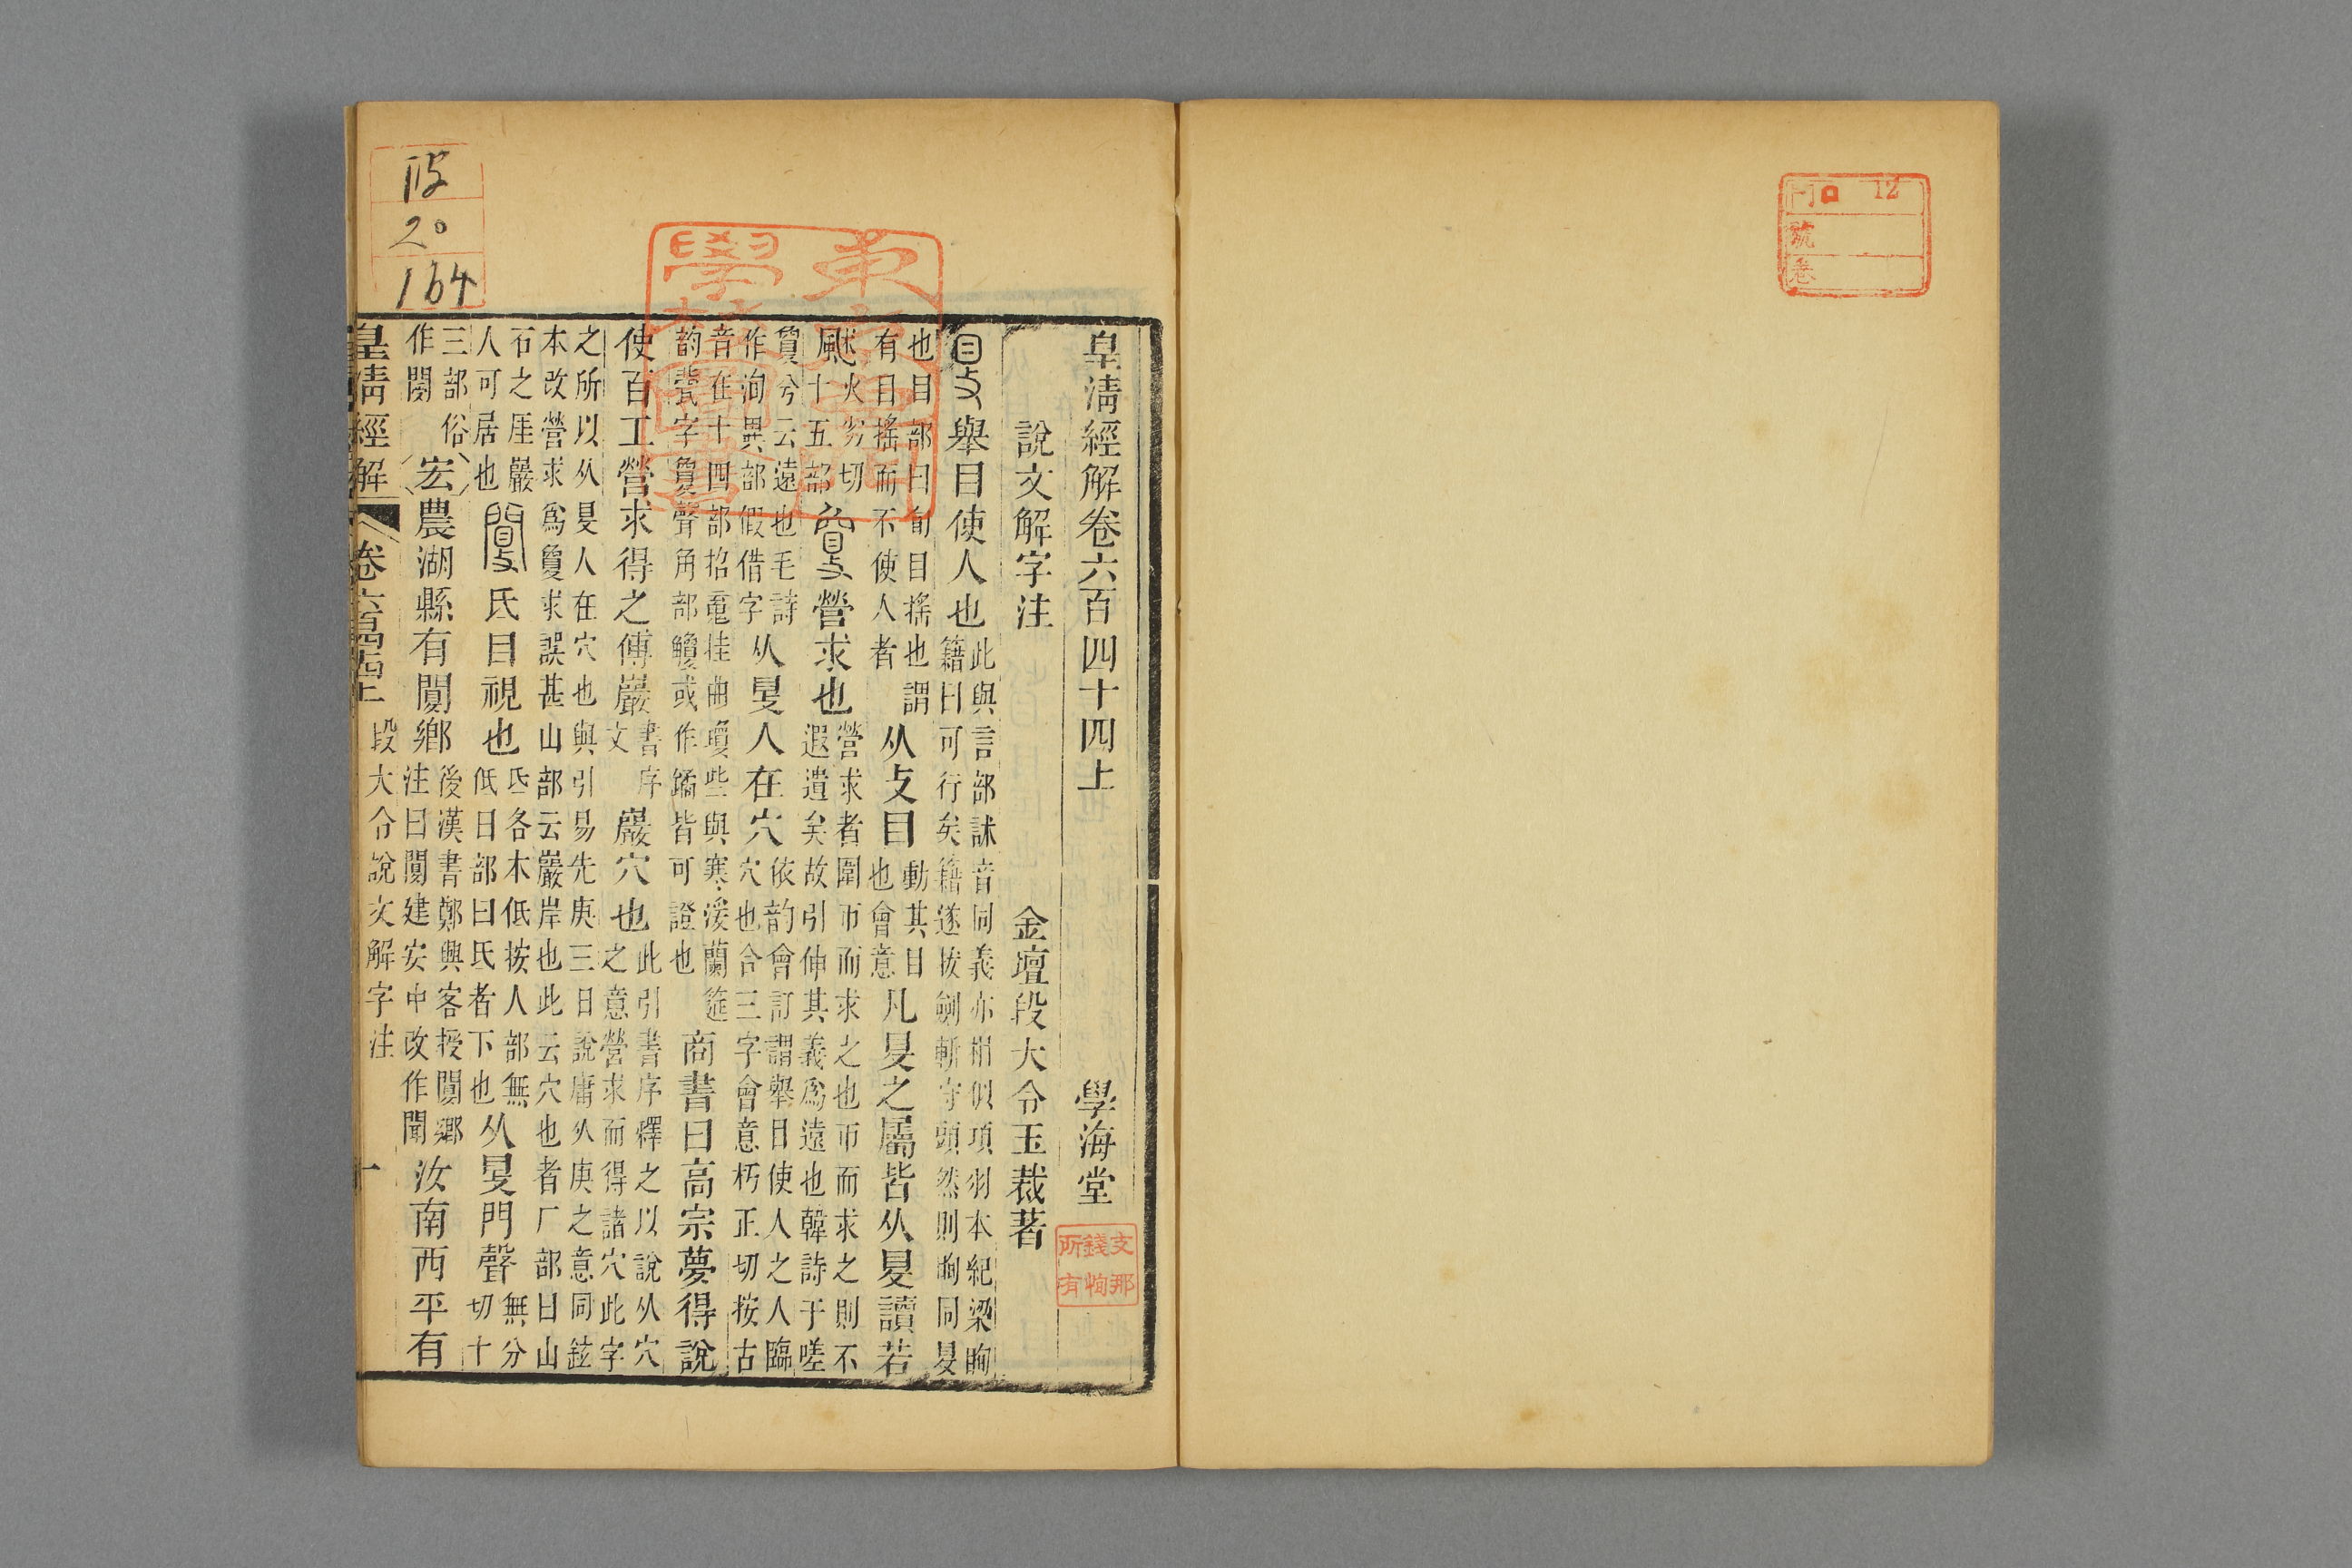 皇淸經解卷六百四十四上 學海堂
說文解字注 金壇段大令玉裁著
𥄎舉目使人也此與言部訹音同義亦相似項羽本紀梁眴
籍曰可行矣籍遂拔劒斬守頭然則眴同𥄎
也目部曰旬目搖也謂
有目搖而不使人者从攴目動其目
也會意凡𥄎之屬皆从𥄎讀若
火劣切
十五部夐營求也營求者圍帀而求之也帀而求之則不
遐遺矣故引伸其義爲遠也韓詩于嗟
夐兮云遠也毛詩
作洵異部假借字从𥄎人在穴依韵會訂謂舉目使人之人臨
穴也合三字會意朽正切按古
音在十四部招䰟挂曲瓊些與寒湲蘭筵
韵瓊字夐聲角部觼或作鐍皆可證也商書曰高宗夢得說
使百工營求得之傅巖書序
文巖穴也此引書序釋之以說从穴
之意營求而得諸穴此字
之所以从𥄎人在穴也與引易先庚三日說庸从庚之意同鉉
本改營求爲夐求誤甚山部云巖岸也此云穴也者厂部曰山
石之厓巖
人可居也閺氐目視也氐各木低按人部無
低日部曰氐者下也从𥄎門聲無分
切十
三部俗
作閿宏農湖縣有閺鄉後漢書鄭興客授閺鄉
注曰閺建安中改作聞汝南西平有
皇淸經解 卷六百四十四上 段大令說文解字注 一
12
門
號
卷
164
20
支那
錢恂
所有